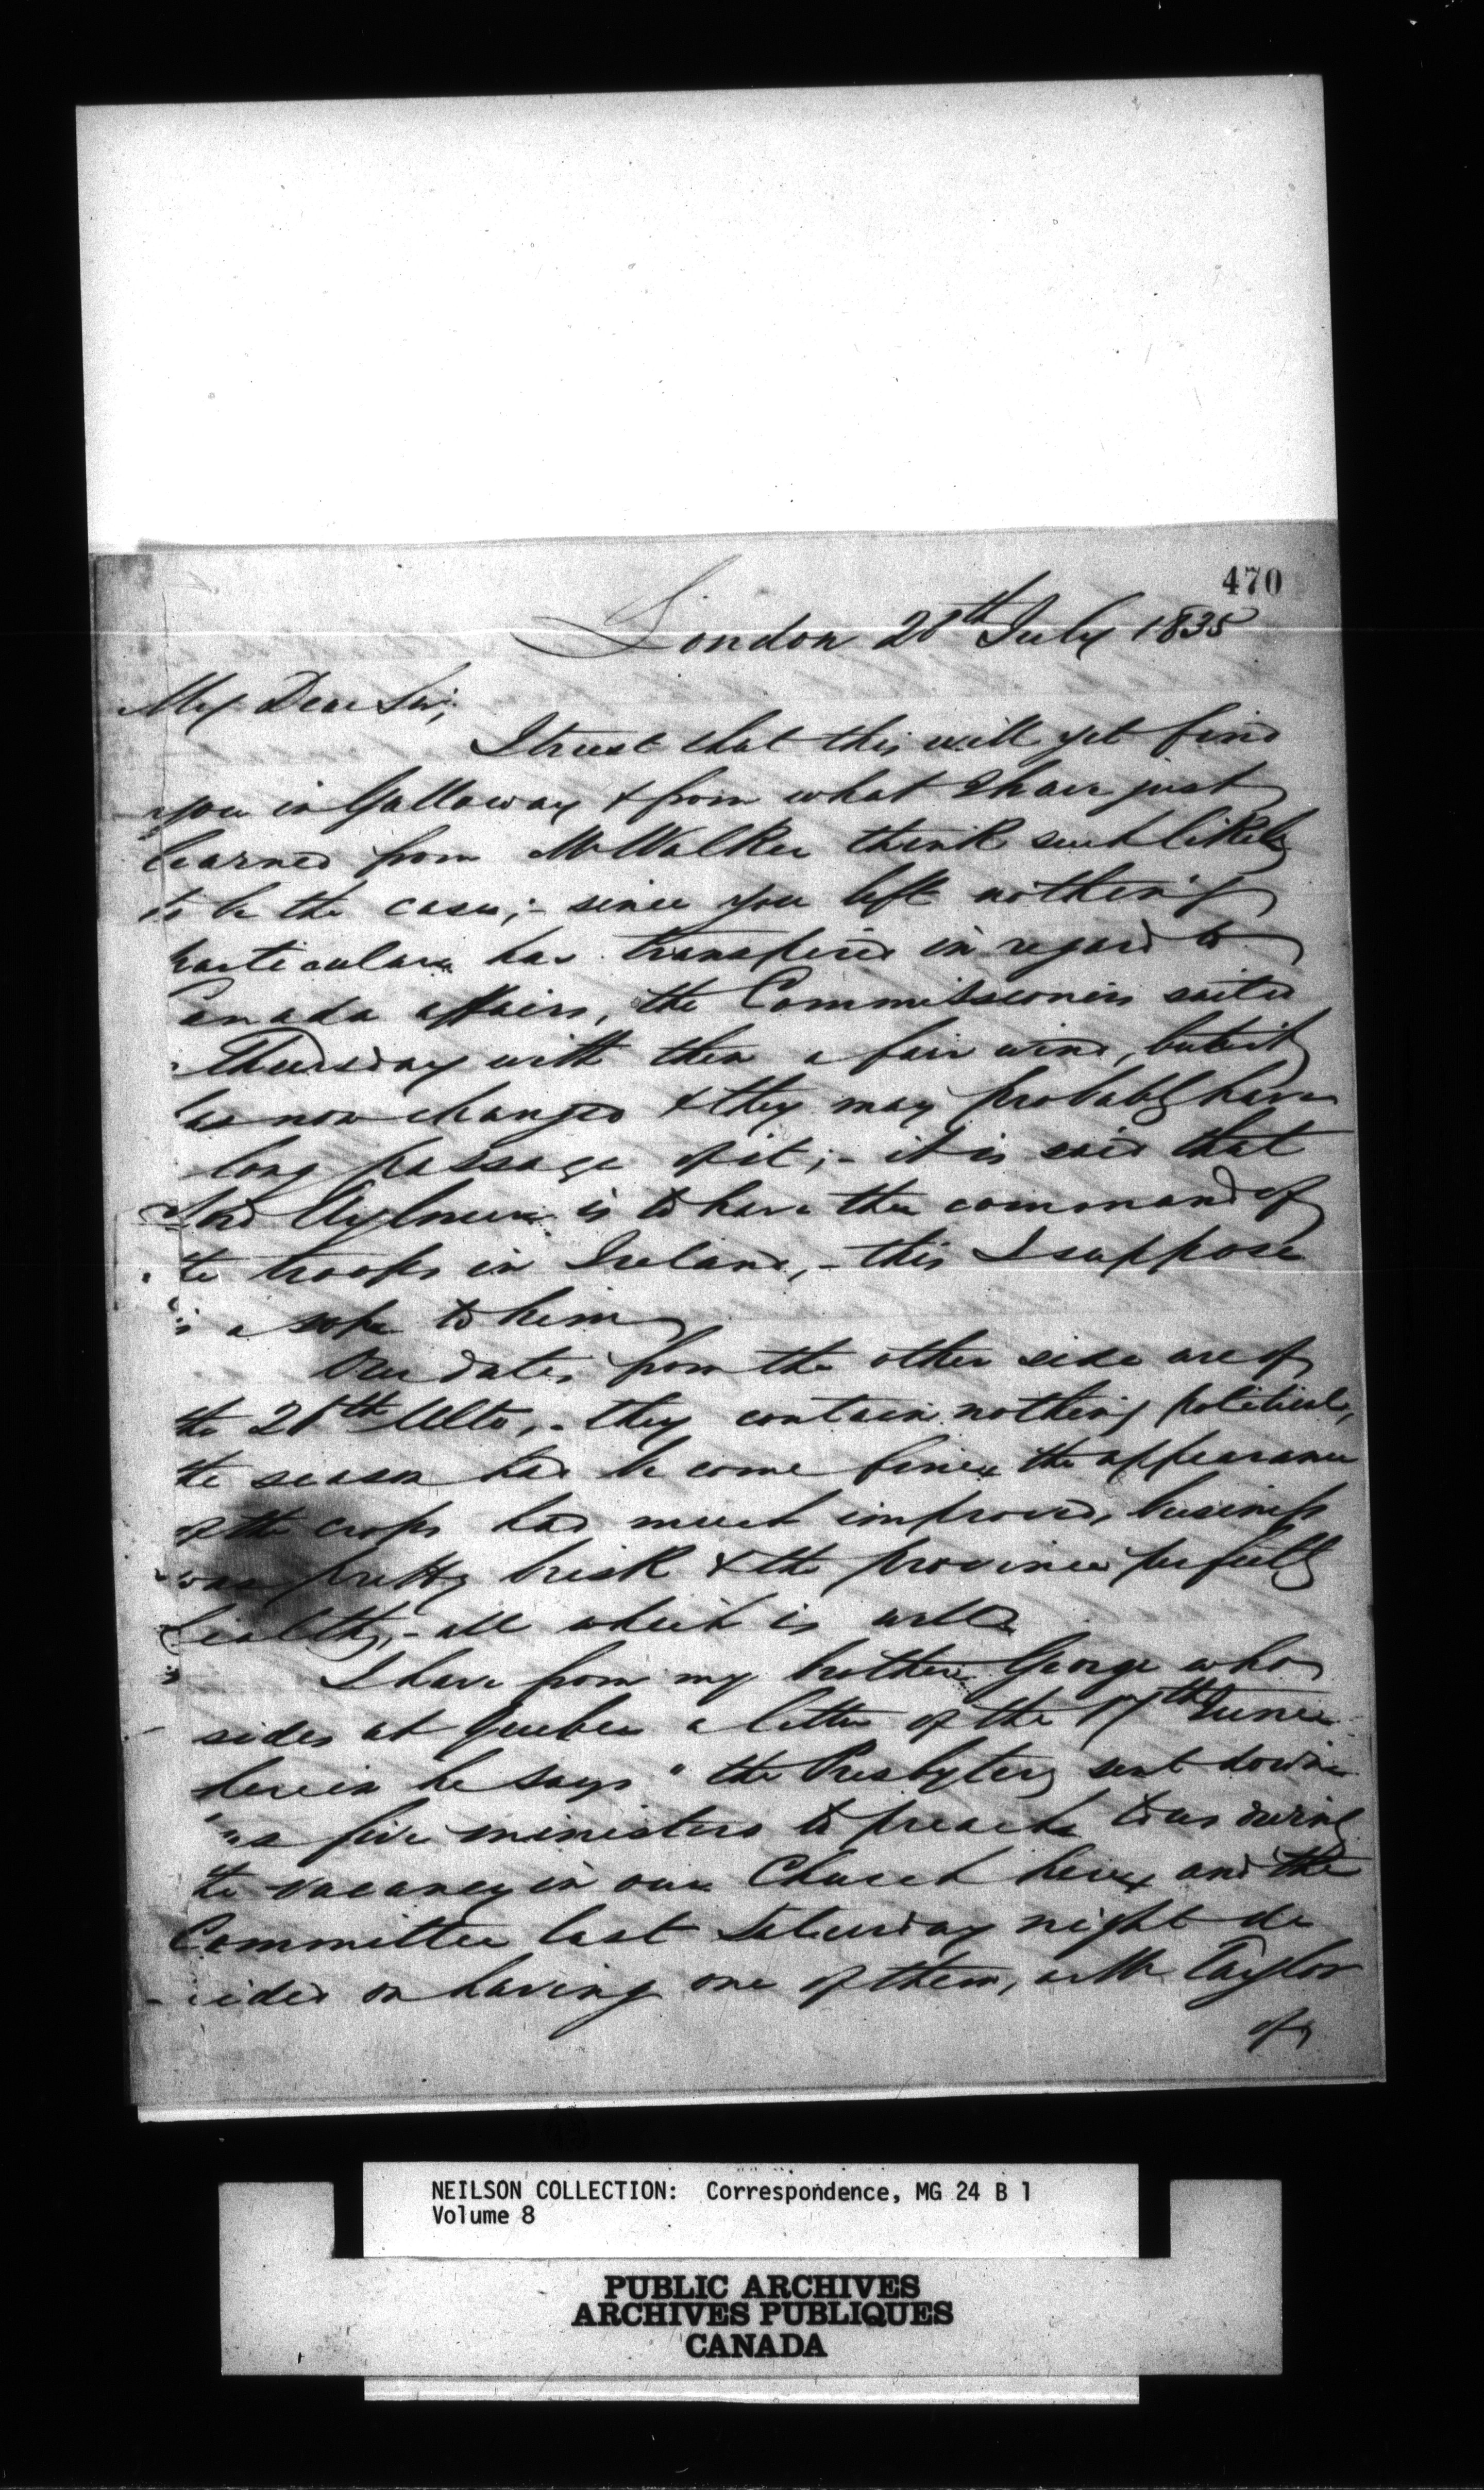 470
London 28th July 1835
My Dear Sir;
I trust that this will yet find
you in Galloway & from what I have just
learned from Mr Walker think such likely
to be the case; - since you left nothing
particular has transpired in regard to
Canada affairs, the Commissioners sailed
Thursday with then a fair wind, but it
has now changed & they may probably have
long passage of it; - it is said that
Lord Aylmer is to have the command of
the troops in Ireland, - this I suppose
is a sop to him
Our dates from the other side are of
the 25th Ulto, - they contain nothing political,
the season had become fine & the appearance
of the crops had much improved, business
was pretty brisk & the province perfectly
healthy, - all which is well
I have from my brother George who
sides at Quebec a letter of the 17th June
herein he says "the Presbytery sent down
us five ministers to preach to us during
the vacancy in our Church here, and the
Committee last Saturday night de
cided on having one of them, a Mr Taylor
of
NEILSON COLLECTION: Correspondence, MG 24 B 1
Volume 8
PUBLIC ARCHIVES
ARCHIVES PUBLIQUES
CANADA